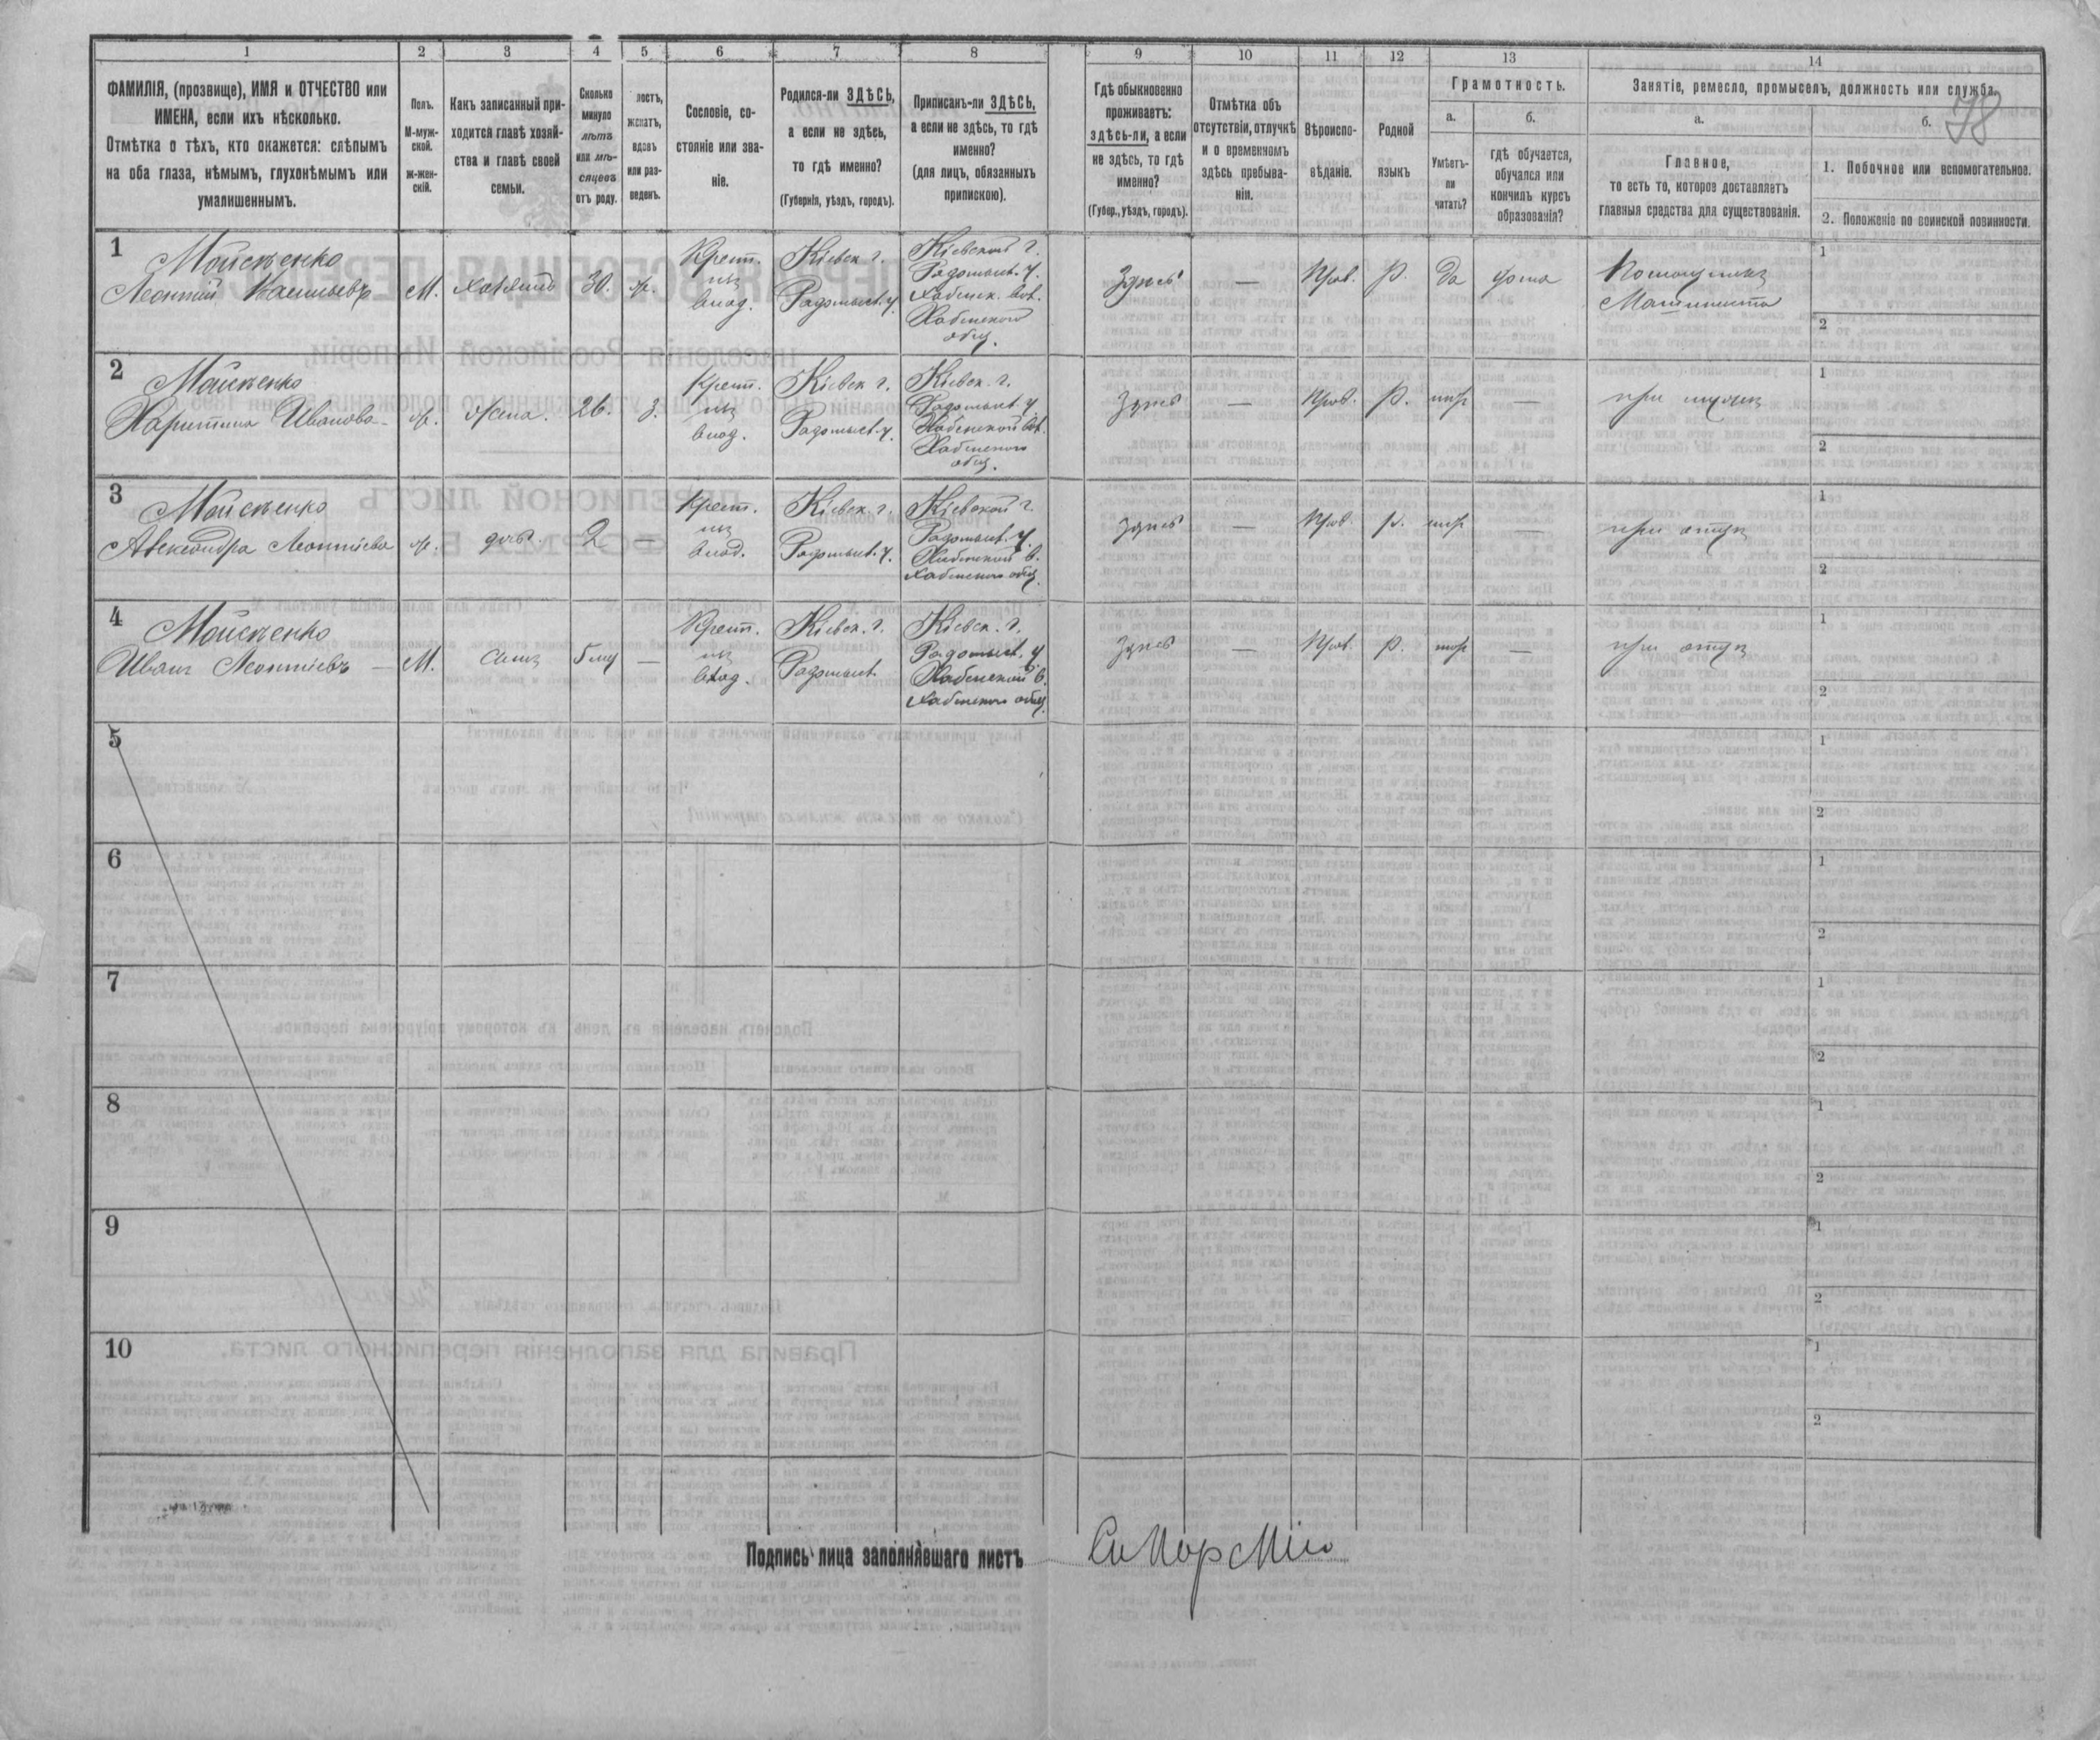 1 2 3 4 5 6 7 8 9 10 11 12 13 14
ФАМИЛІЯ, (прозвище), ИМЯ и ОТЧЕСТВО или
ИМЕНА, если ихъ нѣсколько.
Отмѣтка о тѣхъ, кто окажется: слѣпымъ
на оба глаза, нѣмымъ, глухонѣмымъ или
умалишеннымъ.
Полъ.
М-муж-
ской.
ж-жен-
скій.
Какъ записанный при-
ходится главѣ хозяй-
ства и главѣ своей
семьи.
Сколько
минуло
лѣтъ
или мѣ-
сяцевъ
отъ роду.
лостъ,
женатъ,
вдовъ
или раз-
веденъ.
Сословіе, со-
стояніе или зва-
ніе.
Родился-ли ЗДѢСЬ,
а если не здѣсь,
то гдѣ именно?
(Губернія, уѣздъ, городъ).
Приписанъ-ли ЗДѢСЬ,
а если не здѣсь, то гдѣ
именно?
(для лицъ, обязанныхъ
припискою).
Гдѣ обыкновенно
проживаетъ:
здѣсь-ли, а если
не здѣсь, то гдѣ
именно?
(Губер., уѣздъ, городъ).
Отмѣтка объ
отсутствіи, отлучкѣ
и о временномъ
здѣсь пребыва-
ніи.
Вѣроиспо-
вѣданіе.
Родной
языкъ
Грамотность.
а.
Умѣетъ-
ли
читать?
б.
гдѣ обучается,
обучался или
кончилъ курсъ
образованія?
Занятіе, ремесло, промыселъ, должность или служба.
78
а.
Главное,
то есть то, которое доставляетъ
главныя средства для существованія.
б.
1. Побочное или вспомогательное.
2. Положеніе по воинской повинности.
1
Мойсѣенко
Леонтій Васильевъ
М. Хозяинъ 30. ж.
Крест.
изъ
влад.
Кіевск г.
Радомысл. у.
Кіевской г.
Радомысл. у.
Хабенск. вол.
Хабенского
общ.
Здѣсь — Прав. Р. да дома
Помощникъ
Машиниста
1
2
2
Мойсѣенко
Харитина Иванова
ж. жена. 26. З.
Крест.
изъ
влад.
Кіевск г.
Радомысл. у.
Кіевск. г.
Радомысл. у
Хабенской вол.
Хабенского
общ.
Здѣсь — Прав. Р. нѣт —
при мужѣ
1
2
3
Мойсѣенко
Александра Леонтіева
ж. дочь. 2 —
Крест.
изъ
влад.
Кіевск. г.
Радомысл. у.
Кіевской г.
Радомысл. у.
Хабенской в.
Хабенского общ.
здѣсь — Прав. р. нѣт —
при отцѣ
1
2
4
Мойсѣенко
Иванъ Леонтіевъ —
М. сынъ 5 мѣ —
Крест.
изъ
влад.
Кіевск. г.
Радомысл.
Кіевск. г.
Радомысл. у
Хабенской в.
Хабенского общ.
Здѣсь — Прав. Р. нѣт —
при отцѣ
1
2
5
1
2
6
1
2
7
1
2
8
1
2
9
1
2
10
1
2
Подпись лица заполнявшаго листъ